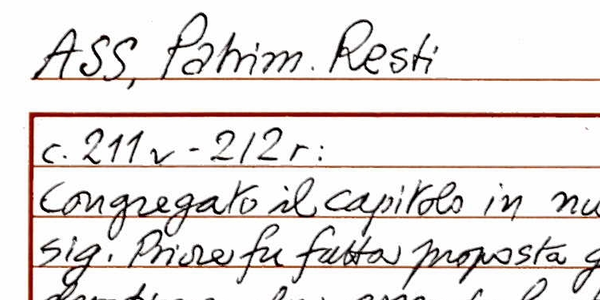 ASS, Patrim. Resti
c. 211v - 212r:
Congregato il capitolo in nu
sig. Priore fu fatta proposta g